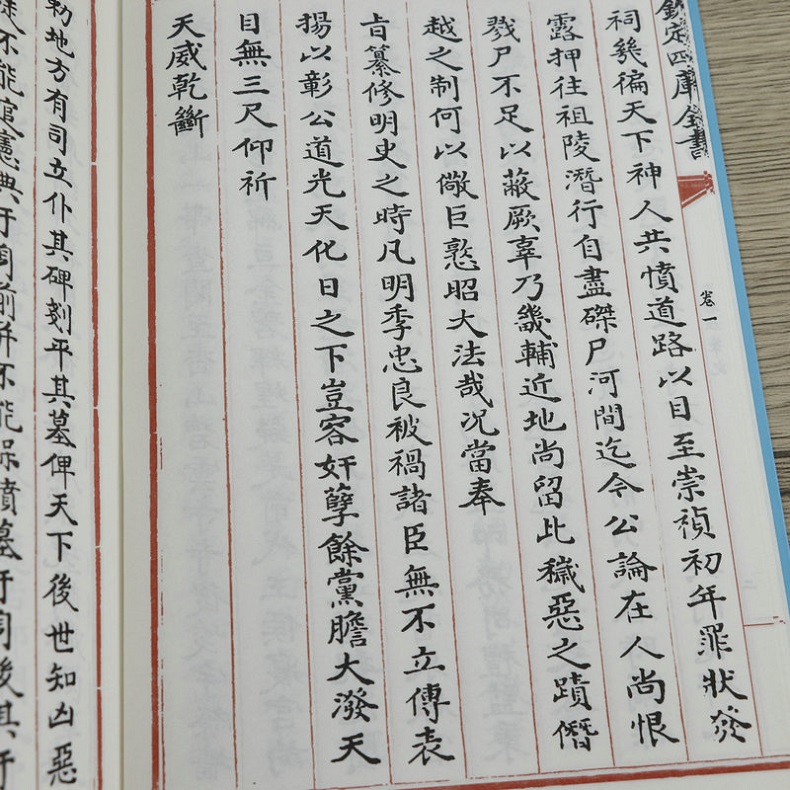 欽定四庫全書
卷一
祠幾徧天下神人共憤道路以目至崇禎初年罪狀發
露押往祖陵潛行自盡磔尸河間迄今公論在人尚恨
戮尸不足以蔽厥辜乃畿輔近地尚留此穢惡之蹟僭
越之制何以儆巨憝昭大法哉况當奉
旨纂修明史之時凡明季忠良被禍諸臣無不立傳表
揚以彰公道光天化日之下豈容奸孽餘黨膽大潑天
目無三尺仰祈
天威乾斷
勅地方有司立仆其碑剗平其墓俾天下後世知凶惡
不能
憲典于
前併不能保墳墓于
後其于